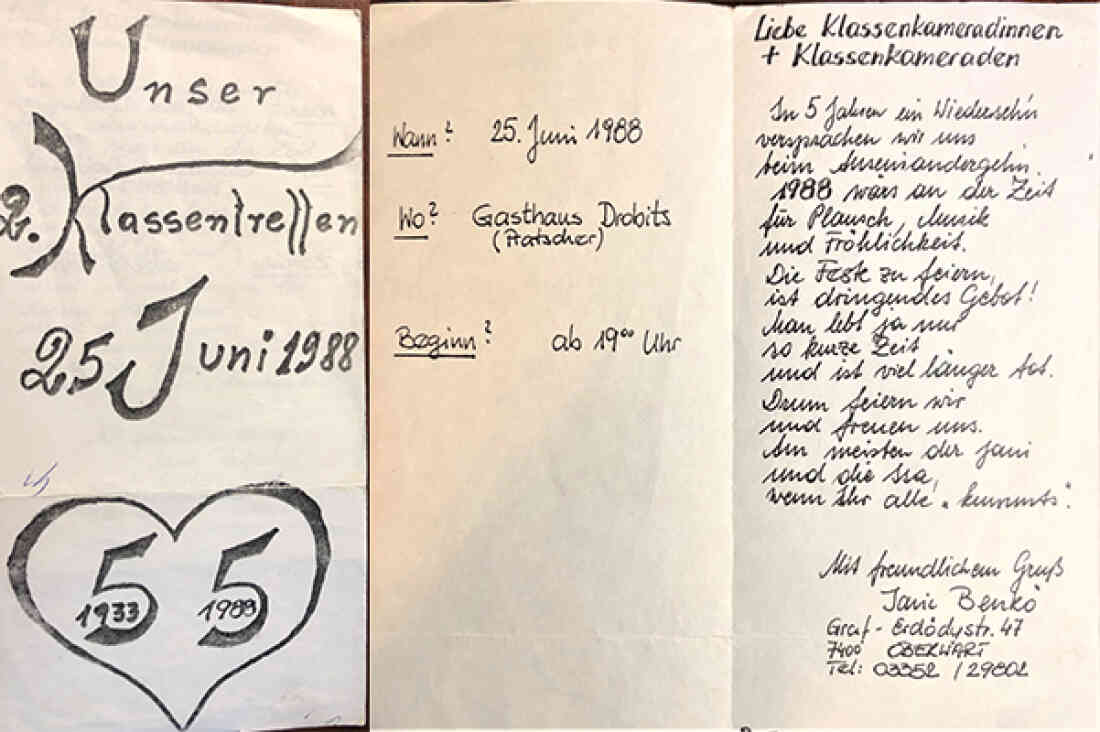 Unser
2. Klassentreffen
25 Juni 1988
55
1933 1988
Wann? 25. Juni 1988
Wo? Gasthaus Drobits
(Pratscher)
Beginn? ab 19°° Uhr
Liebe Klassenkameradinnen
+ Klassenkameraden
In 5 Jahren ein Wiederseh'n
versprachen wir uns
beim Auseinandergehn.
1988 wärs an der Zeit
für Plausch, Musik
und Fröhlichkeit.
Die Feste zu feiern,
ist dringendes Gebot!
Man lebt ja nur
so kurze Zeit
und ist viel länger tot.
Drum feiern wir
und freuen uns.
Am meisten der Jani
und die Isa,
wenn Ihr alle „kummts“.
Mit freundlichem Gruß
Janic Benkö
Graf-Erdödystr. 47
7400 OBERWART
Tel: 03352 / 29802